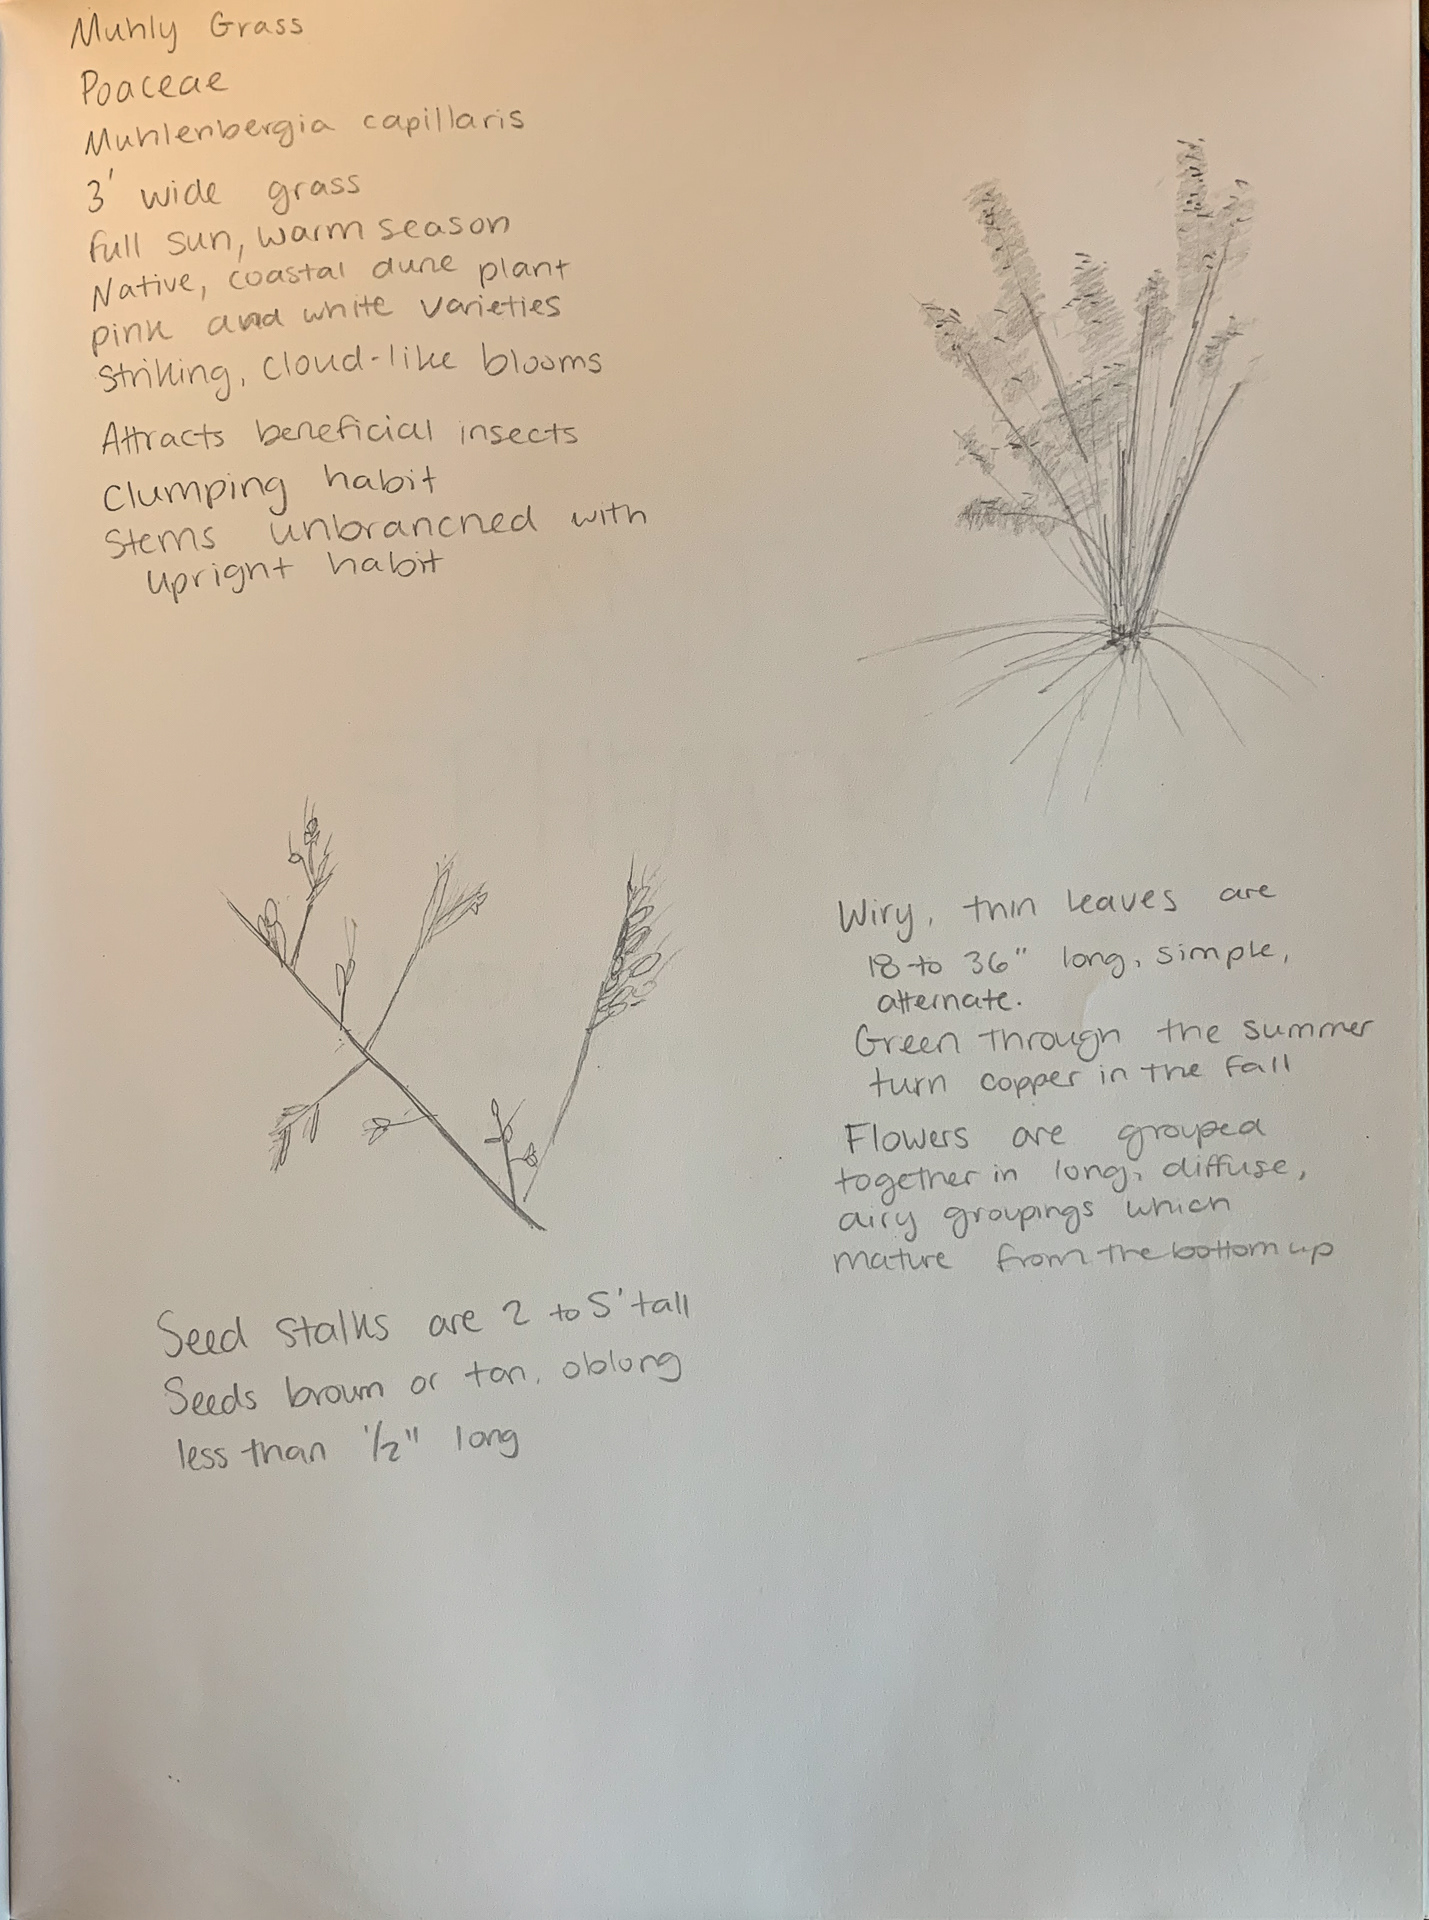 Muhly Grass
Poaceae
Muhlenbergia capillaris
3' wide grass
full sun, warm season
Native, coastal dune plant
pink and white varieties
Striking, cloud-like blooms
Attracts beneficial insects
Clumping habit
Stems unbranched with
upright habit
Wiry, thin leaves are
18 to 36" long, simple,
alternate.
Green through the summer
turn copper in the fall
Flowers are grouped
together in long, diffuse,
airy groupings which
mature from the bottom up
Seed stalks are 2 to 5' tall
Seeds brown or tan, oblong
less than 1/2" long